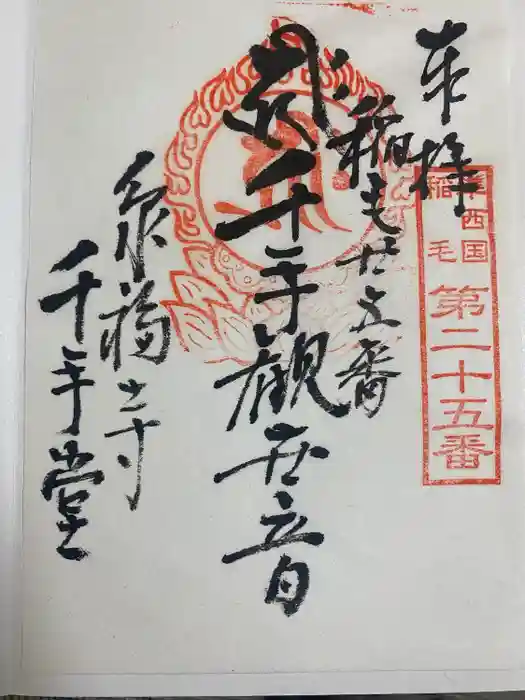 奉拝
準西国
稲毛
第二十五番
稲毛廿五番
千手観世音
泉福寺
千手堂